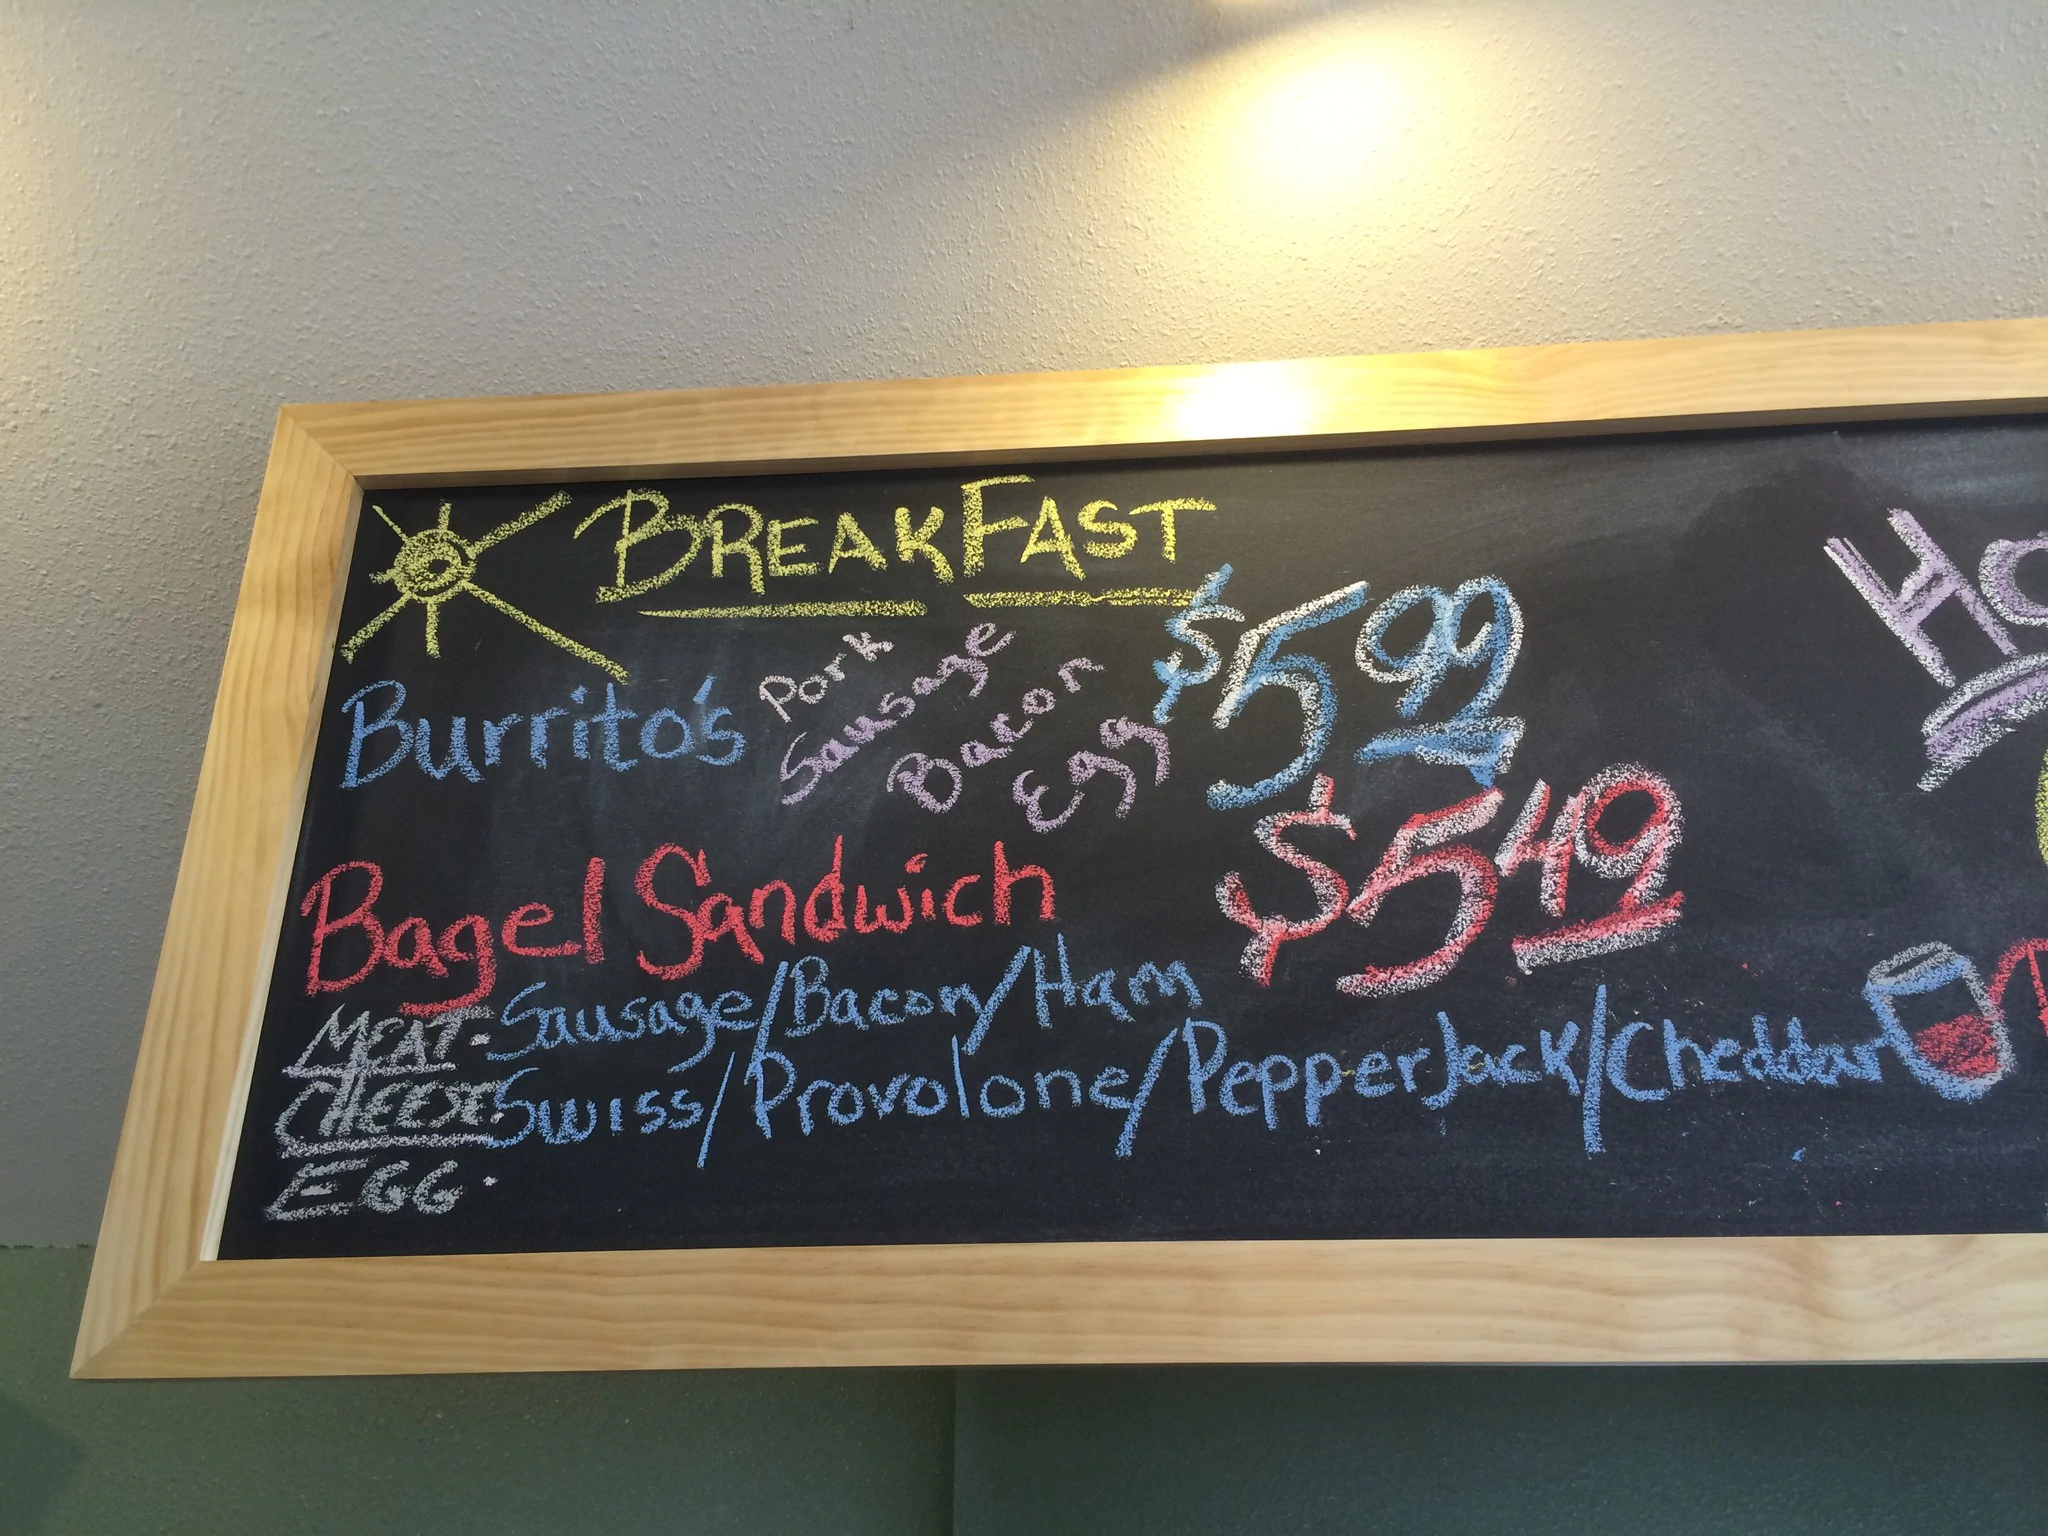 BREAKFAST
Burrito's Pork Sausage Bacon Egg $5.99
Bagel Sandwich $5.49
MEAT. Sausage/Bacon/Ham
CHEESE: Swiss/Provolone/PepperJack/Cheddar
EGG.